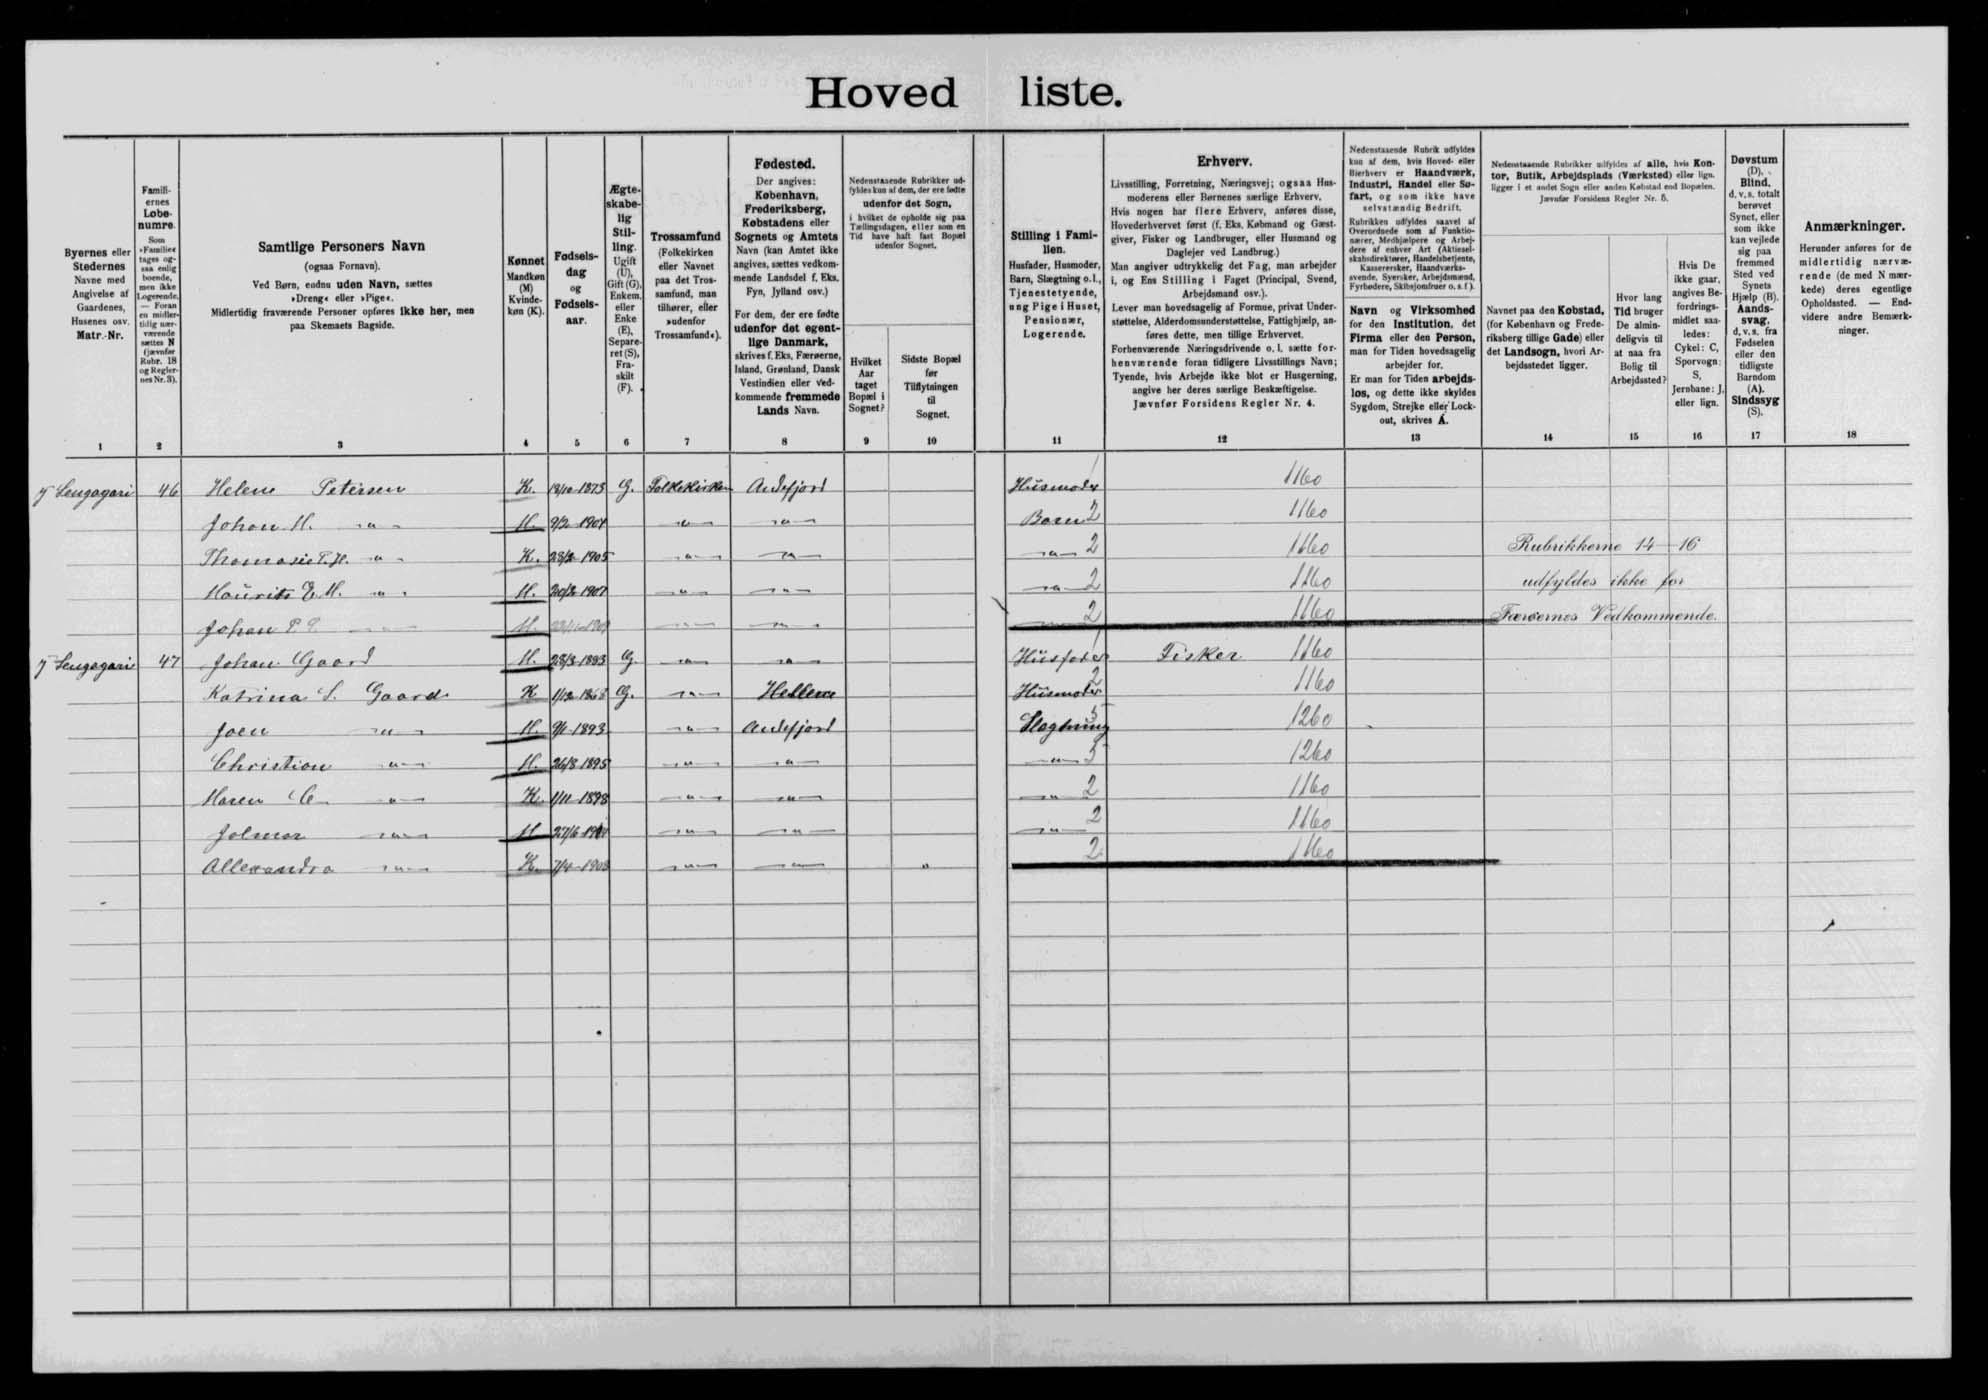 Hoved liste.
Byernes eller
Stedernes
Navne med
Angivelse af
Gaardenes,
Husenes osv.
Matr.-Nr.
1
Famili-
ernes
Løbe-
numre.
Som
»Familie«
tages og-
saa enlig
boende,
men ikke
Logerende.
— Foran
en midler-
tidig nær-
værende
sættes N
(jævnfør
Rubr. 18
og Regler-
nes Nr. 3).
2
Samtlige Personers Navn
(ogsaa Fornavn).
Ved Børn, endnu uden Navn, sættes
»Dreng« eller »Pige«.
Midlertidig fraværende Personer opføres ikke her, men
paa Skemaets Bagside.
3
Kønnet
Mandkøn
(M)
Kvinde-
køn (K).
4
Fødsels-
dag
og
Fødsels-
aar.
5
Ægte-
skabe-
lig
Stil-
ling.
Ugift
(U),
Gift (G),
Enkem.
eller
Enke
(E),
Separe-
ret (S),
Fra-
skilt
(F).
6
Trossamfund
(Folkekirken
eller Navnet
paa det Tros-
samfund, man
tilhører, eller
»udenfor
Trossamfund«).
7
Fødested.
Der angives:
København,
Frederiksberg,
Købstadens eller
Sognets og Amtets
Navn (kan Amtet ikke
angives, sættes vedkom-
mende Landsdel f. Eks.
Fyn, Jylland osv.)
For dem, der ere fødte
udenfor det egent-
lige Danmark,
skrives f. Eks. Færøerne,
Island, Grønland, Dansk
Vestindien eller ved-
kommende fremmede
Lands Navn.
8
Nedenstaaende Rubrikker ud-
fyldes kun af dem, der ere fødte
udenfor det Sogn,
i hvilket de opholde sig paa
Tællingsdagen, eller som en
Tid have haft fast Bopæl
udenfor Sognet.
Hvilket
Aar
taget
Bopæl i
Sognet?
9
Sidste Bopæl
før
Tilflytningen
til
Sognet.
10
Stilling i Fami-
lien.
Husfader, Husmoder,
Barn, Slægtning o.l.,
Tjenestetyende,
ung Pige i Huset,
Pensionær,
Logerende.
11
Erhverv.
Livsstilling, Forretning, Næringsvej; ogsaa Hus-
moderens eller Børnenes særlige Erhverv.
Hvis nogen har flere Erhverv, anføres disse,
Hovederhvervet først (f. Eks. Købmand og Gæst-
giver, Fisker og Landbruger, eller Husmand og
Daglejer ved Landbrug.)
Man angiver udtrykkelig det Fag, man arbejder
i, og Ens Stilling i Faget (Principal, Svend,
Arbejdsmand osv.).
Lever man hovedsagelig af Formue, privat Under-
støttelse, Alderdomsunderstøttelse, Fattighjælp, an-
føres dette, men tillige Erhvervet.
Forhenværende Næringsdrivende o. l. sætte for-
henværende foran tidligere Livsstillings Navn;
Tyende, hvis Arbejde ikke blot er Husgerning,
angive her deres særlige Beskæftigelse.
Jævnfør Forsidens Regler Nr. 4.
12
Nedenstaaende Rubrik udfyldes
kun af dem, hvis Hoved- eller
Bierhverv er Haandværk,
Industri, Handel eller Sø-
fart, og som ikke have
selvstændig Bedrift.
Rubrikken udfyldes saavel af
Overordnede som af Funktio-
nærer, Medhjælpere og Arbej-
dere af enhver Art (Aktiesel-
skabsdirektører, Handelsbetjente,
Kasserersker, Haandværks-
svende, Syersker, Arbejdsmænd,
Fyrbødere, Skibsjomfruer o. s. f.).
Navn og Virksomhed
for den Institution, det
Firma eller den Person,
man for Tiden hovedsagelig
arbejder for.
Er man for Tiden arbejds-
løs, og dette ikke skyldes
Sygdom, Strejke eller Lock-
out, skrives A.
13
Nedenstaaende Rubrikker udfyldes af alle, hvis Kon-
tor, Butik, Arbejdsplads (Værksted) eller lign.
ligger i et andet Sogn eller anden Købstad end Bopælen.
Jævnfør Forsidens Regler Nr. 5.
Navnet paa den Købstad,
(for København og Frede-
riksberg tillige Gade) eller
det Landsogn, hvori Ar-
bejdsstedet ligger.
14
Hvor lang
Tid bruger
De almin-
deligvis til
at naa fra
Bolig til
Arbejdssted?
15
Hvis De
ikke gaar,
angives Be-
fordrings-
midlet saa-
ledes:
Cykel: C,
Sporvogn:
S,
Jernbane: J,
eller lign.
16
Døvstum
(D),
Blind,
d. v. s. totalt
berøvet
Synet, eller
som ikke
kan vejlede
sig paa
fremmed
Sted ved
Synets
Hjælp (B).
Aands-
svag,
d. v. s. fra
Fødselen
eller den
tidligste
Barndom
(A).
Sindssyg
(S).
17
Anmærkninger.
Herunder anføres for de
midlertidig nærvæ-
rende (de med N mær-
kede) deres egentlige
Opholdssted. — End-
videre andre Bemærk-
ninger.
18
46 Helene Petersen K. 13/10-1873 G. Folkekirken Andefjord Husmoder 1 1160
Johan M. M. 9/2-1904 Barn 2 1160
Thomasie P. H. K. 1905 2 1160 Rubrikkerne 14-16
Maurits E. M. M. 2 1160 udfyldes ikke for
Johan P. M. 2 1160 Færøernes Vedkommende.
47 Johan Gaard M. G. Husfader 1 Fisker 1160
Katrina S. Gaard K G. Husmoder 2 1160
Joen M. 9/1-1893 Andefjord Slægtning 5 1260
Christian M. 26/8-1895 5 1260
Maren C. K. 1/11-1898 2 1160
Jolmar M 2 1160
Allexandra K. 7/4-1903 2 1160